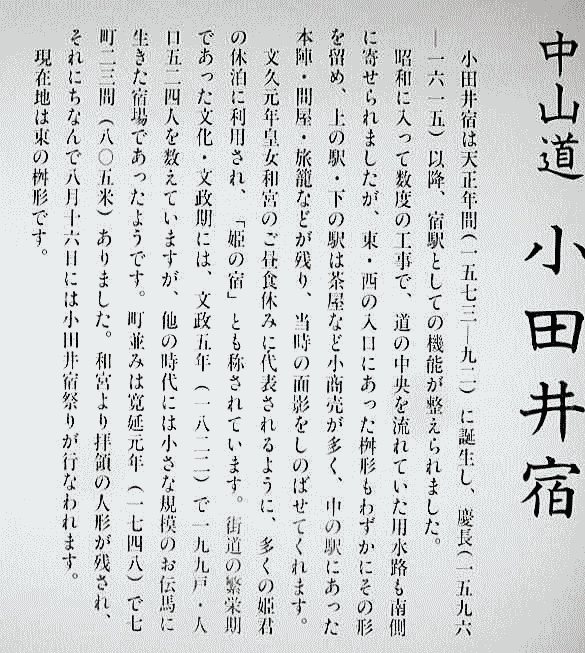 中山道 小田井宿
小田井宿は天正年間(一五七三―九二)に誕生し、慶長(一五九六
―一六一五)以降、宿駅としての機能が整えられました。
昭和に入って数度の工事で、道の中央を流れていた用水路も南側
に寄せられましたが、東・西の入口にあった桝形もわずかにその形
を留め、上の駅・下の駅は茶屋など小商売が多く、中の駅にあった
本陣・問屋・旅籠などが残り、当時の面影をしのばせてくれます。
文久元年皇女和宮のご昼食休みに代表されるように、多くの姫君
の休泊に利用され、「姫の宿」とも称されています。街道の繁栄期
であった文化・文政期には、文政五年(一八二二)で一九九戸・人
口五二四人を数えていますが、他の時代には小さな規模のお伝馬に
生きた宿場であったようです。町並みは寛延元年(一七四八)で七
町二三間(八〇五米)ありました。和宮より拝領の人形が残され、
それにちなんで八月十六日には小田井宿祭りが行なわれます。
現在地は東の桝形です。